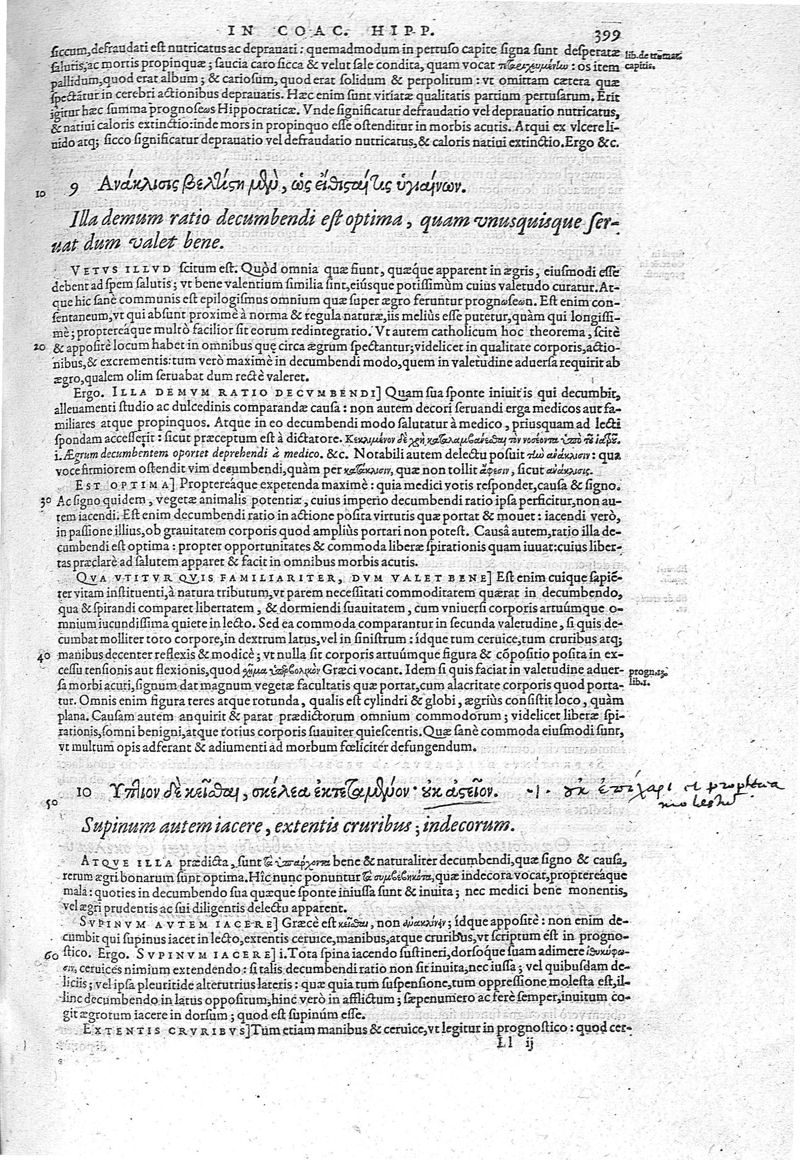 IN COAC. HIPP. 399
siccum, defraudati est nutricatus ac deprauati: quemadmodum in pertuso capite signa sunt desperatæ
salutis, ac mortis propinquæ; saucia caro sicca & velut sale condita, quam vocat : os item
lib. de
capitis.
pallidum, quod erat album; & cariosum, quod erat solidum & perpolitum: vt omittam cætera quæ
spectãtur in cerebri actionibus deprauatis. Hæc enim sunt vitiatæ qualitatis partium pertusarum. Erit
igitur hæc summa prognoseωs Hippocraticæ. Vnde significatur defraudatio vel deprauatio nutricatus,
& natiui caloris extinctio: inde mors in propinquo esse ostenditur in morbis acutis. Atqui ex vlcere li-
uido atq; sicco significatur deprauatio vel defraudatio nutricatus, & caloris natiui extinctio. Ergo &c.
10
9 Ανάκλισις βελτίστη μὲν, ὡς εἴθισταί τις ὑγιαίνων.
Illa demum ratio decumbendi est optima, quam vnusquisque ser-
uat dum valet bene.
VETVS ILLVD scitum est. Quòd omnia quæ fiunt, quæque apparent in ægris, eiusmodi esse
debent ad spem salutis; vt bene valentium similia sint, eiúsque potissimùm cuius valetudo curatur. At-
que hic sanè communis est epilogismus omnium quæ super ægro feruntur prognωseων. Est enim con-
sentaneum, vt qui absunt proximè à norma & regula naturæ, iis meliùs esse putetur, quàm qui longissi-
mè; proptereáque multò facilior sit eorum redintegratio. Vt autem catholicum hoc theorema, scitè
20 & appositè locum habet in omnibus quę circa ægrum spectantur; videlicet in qualitate corporis, actio-
nibus, & excrementis: tum verò maximè in decumbendi modo, quem in valetudine aduersa requirit ab
ægro, qualem olim seruabat dum rectè valeret.
Ergo. ILLA DEMVM RATIO DECVMBENDI] Quam sua sponte iniuitis qui decumbit,
alleuamenti studio ac dulcedinis comparandæ causa: non autem decori seruandi erga medicos aut fa-
miliares atque propinquos. Atque in eo decumbendi modo salutatur à medico, priusquam ad lecti
spondam accesserit: sicut præceptum est à dictatore.
i. Ægrum decumbentem oportet deprehendi à medico. &c. Notabili autem delectu posuit τὴν ἀνάκλισιν: qua
voce firmiorem ostendit vim decumbendi, quàm per κατάκλισιν, quæ non tollit ἄφεσιν, sicut ἀνάκλισις.
EST OPTIMA] Proptereáque expetenda maximè: quia medici votis respondet, causa & signo.
30 Ac signo quidem, vegetæ animalis potentiæ, cuius imperio decumbendi ratio ipsa perficitur, non au-
tem iacendi. Est enim decumbendi ratio in actione posita virtutis quæ portat & mouet: iacendi verò,
in passione illius, ob grauitatem corporis quod ampliùs portari non potest. Causâ autem, ratio illa de-
cumbendi est optima: propter opportunitates & commoda liberæ spirationis quam iuuat: cuius liber-
tas præclarè ad salutem apparet & facit in omnibus morbis acutis.
QVA VTITVR QVIS FAMILIARITER, DVM VALET BENE] Est enim cuique sapiẽ-
ter vitam instituenti, à natura tributum, vt parem necessitati commoditatem quærat in decumbendo,
qua & spirandi comparet libertatem, & dormiendi suauitatem, cum vniuersi corporis artuúmque o-
mnium iucundissima quiete in lecto. Sed ea commoda comparantur in secunda valetudine, si quis de-
cumbat molliter toto corpore, in dextrum latus, vel in sinistrum: ídque tum ceruice, tum cruribus atq;
40 manibus decenter reflexis & modicè; vt nulla sit corporis artuúmque figura & cõpositio posita in ex-
cessu tensionis aut flexionis, quod σχῆμα ὑπερβολικὸν Græci vocant. Idem si quis faciat in valetudine aduer-
progn.
lib. 1.
sa morbi acuti, signum dat magnum vegetæ facultatis quæ portat, cum alacritate corporis quod porta-
tur. Omnis enim figura teres atque rotunda, qualis est cylindri & globi, ægriùs consistit loco, quàm
plana. Causam autem anquirit & parat prædictorum omnium commodorum; videlicet liberæ spi-
rationis, somni benigni, atque totius corporis suauiter quiescentis. Quæ sanè commoda eiusmodi sunt,
vt multum opis adferant & adiumenti ad morbum fœliciter defungendum.
50
10 Υπτιον δὲ κεῖσθαι, σκέλεα ἐκτεταμένον· οὐκ ἀστεῖον. .i. οὐκ ἐπίχαρι et proptera
molestu
Supinum autem iacere, extentis cruribus; indecorum.
ATQVE ILLA prædicta, sunt τὰ ὑπάρχοντα bene & naturaliter decumbendi, quæ signo & causa,
rerum ægri bonarum sunt optima. Hîc nunc ponuntur τὰ συμβεβηκότα, quæ indecora vocat, proptereáque
mala: quoties in decumbendo sua quæque sponte iniussa sunt & inuita; nec medici bene monentis,
vel ægri prudentis ac sui diligentis delectu apparent.
SVPINVM AVTEM IACERE] Græcè est κεῖσθαι, non ἀνακλίνειν; idque appositè: non enim de-
cumbit qui supinus iacet in lecto, extentis ceruice, manibus, atque cruribus, vt scriptum est in progno-
60 stico. Ergo. SVPINVM IACERE] i. Tota spina iacendo sustineri, dorsoque suam adimere
ceruices nimium extendendo: si talis decumbendi ratio non sit inuita, nec iussa; vel quibusdam de-
liciis; vel ipsa pleuritide alterutrius lateris: quæ quia tum suspensione, tum oppressione molesta est, il-
linc decumbendo in latus oppositum, hinc verò in afflictum; sæpenumero ac ferè semper, inuitum co-
git ægrotum iacere in dorsum; quod est supinum esse.
EXTENTIS CRVRIBVS] Tum etiam manibus & ceruice, vt legitur in prognostico: quod cer-
Ll ij